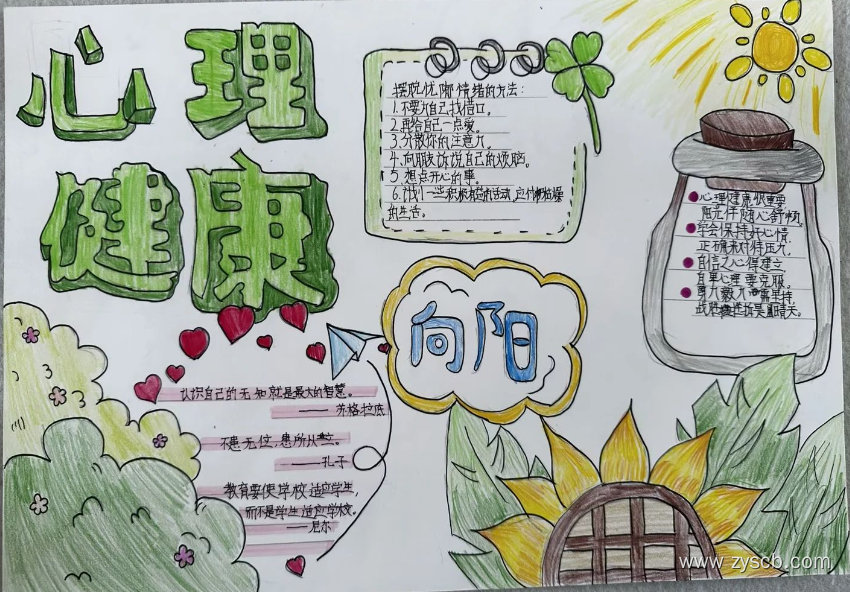 心理
健康
摆脱忧郁情绪的方法:
1.不要为自己找借口。
2.再给自己一点爱。
3.分散你的注意力。
4.向朋友诉说自己的烦恼。
5.想点开心的事。
6.找一些积极的活动,应付
的生活。
心理健康很重要
陪元伴随心舒畅
学会保持好心情
正确来对待压力
自信之心得建立
自卑心理要克服。
向阳
认识自己的无知就是最大的智慧。
——苏格拉底
不患无位,患所从立。
——孔子
教育要使学校适应学生,
而不是学生适应学校。
——尼尔
www.zyscb.com